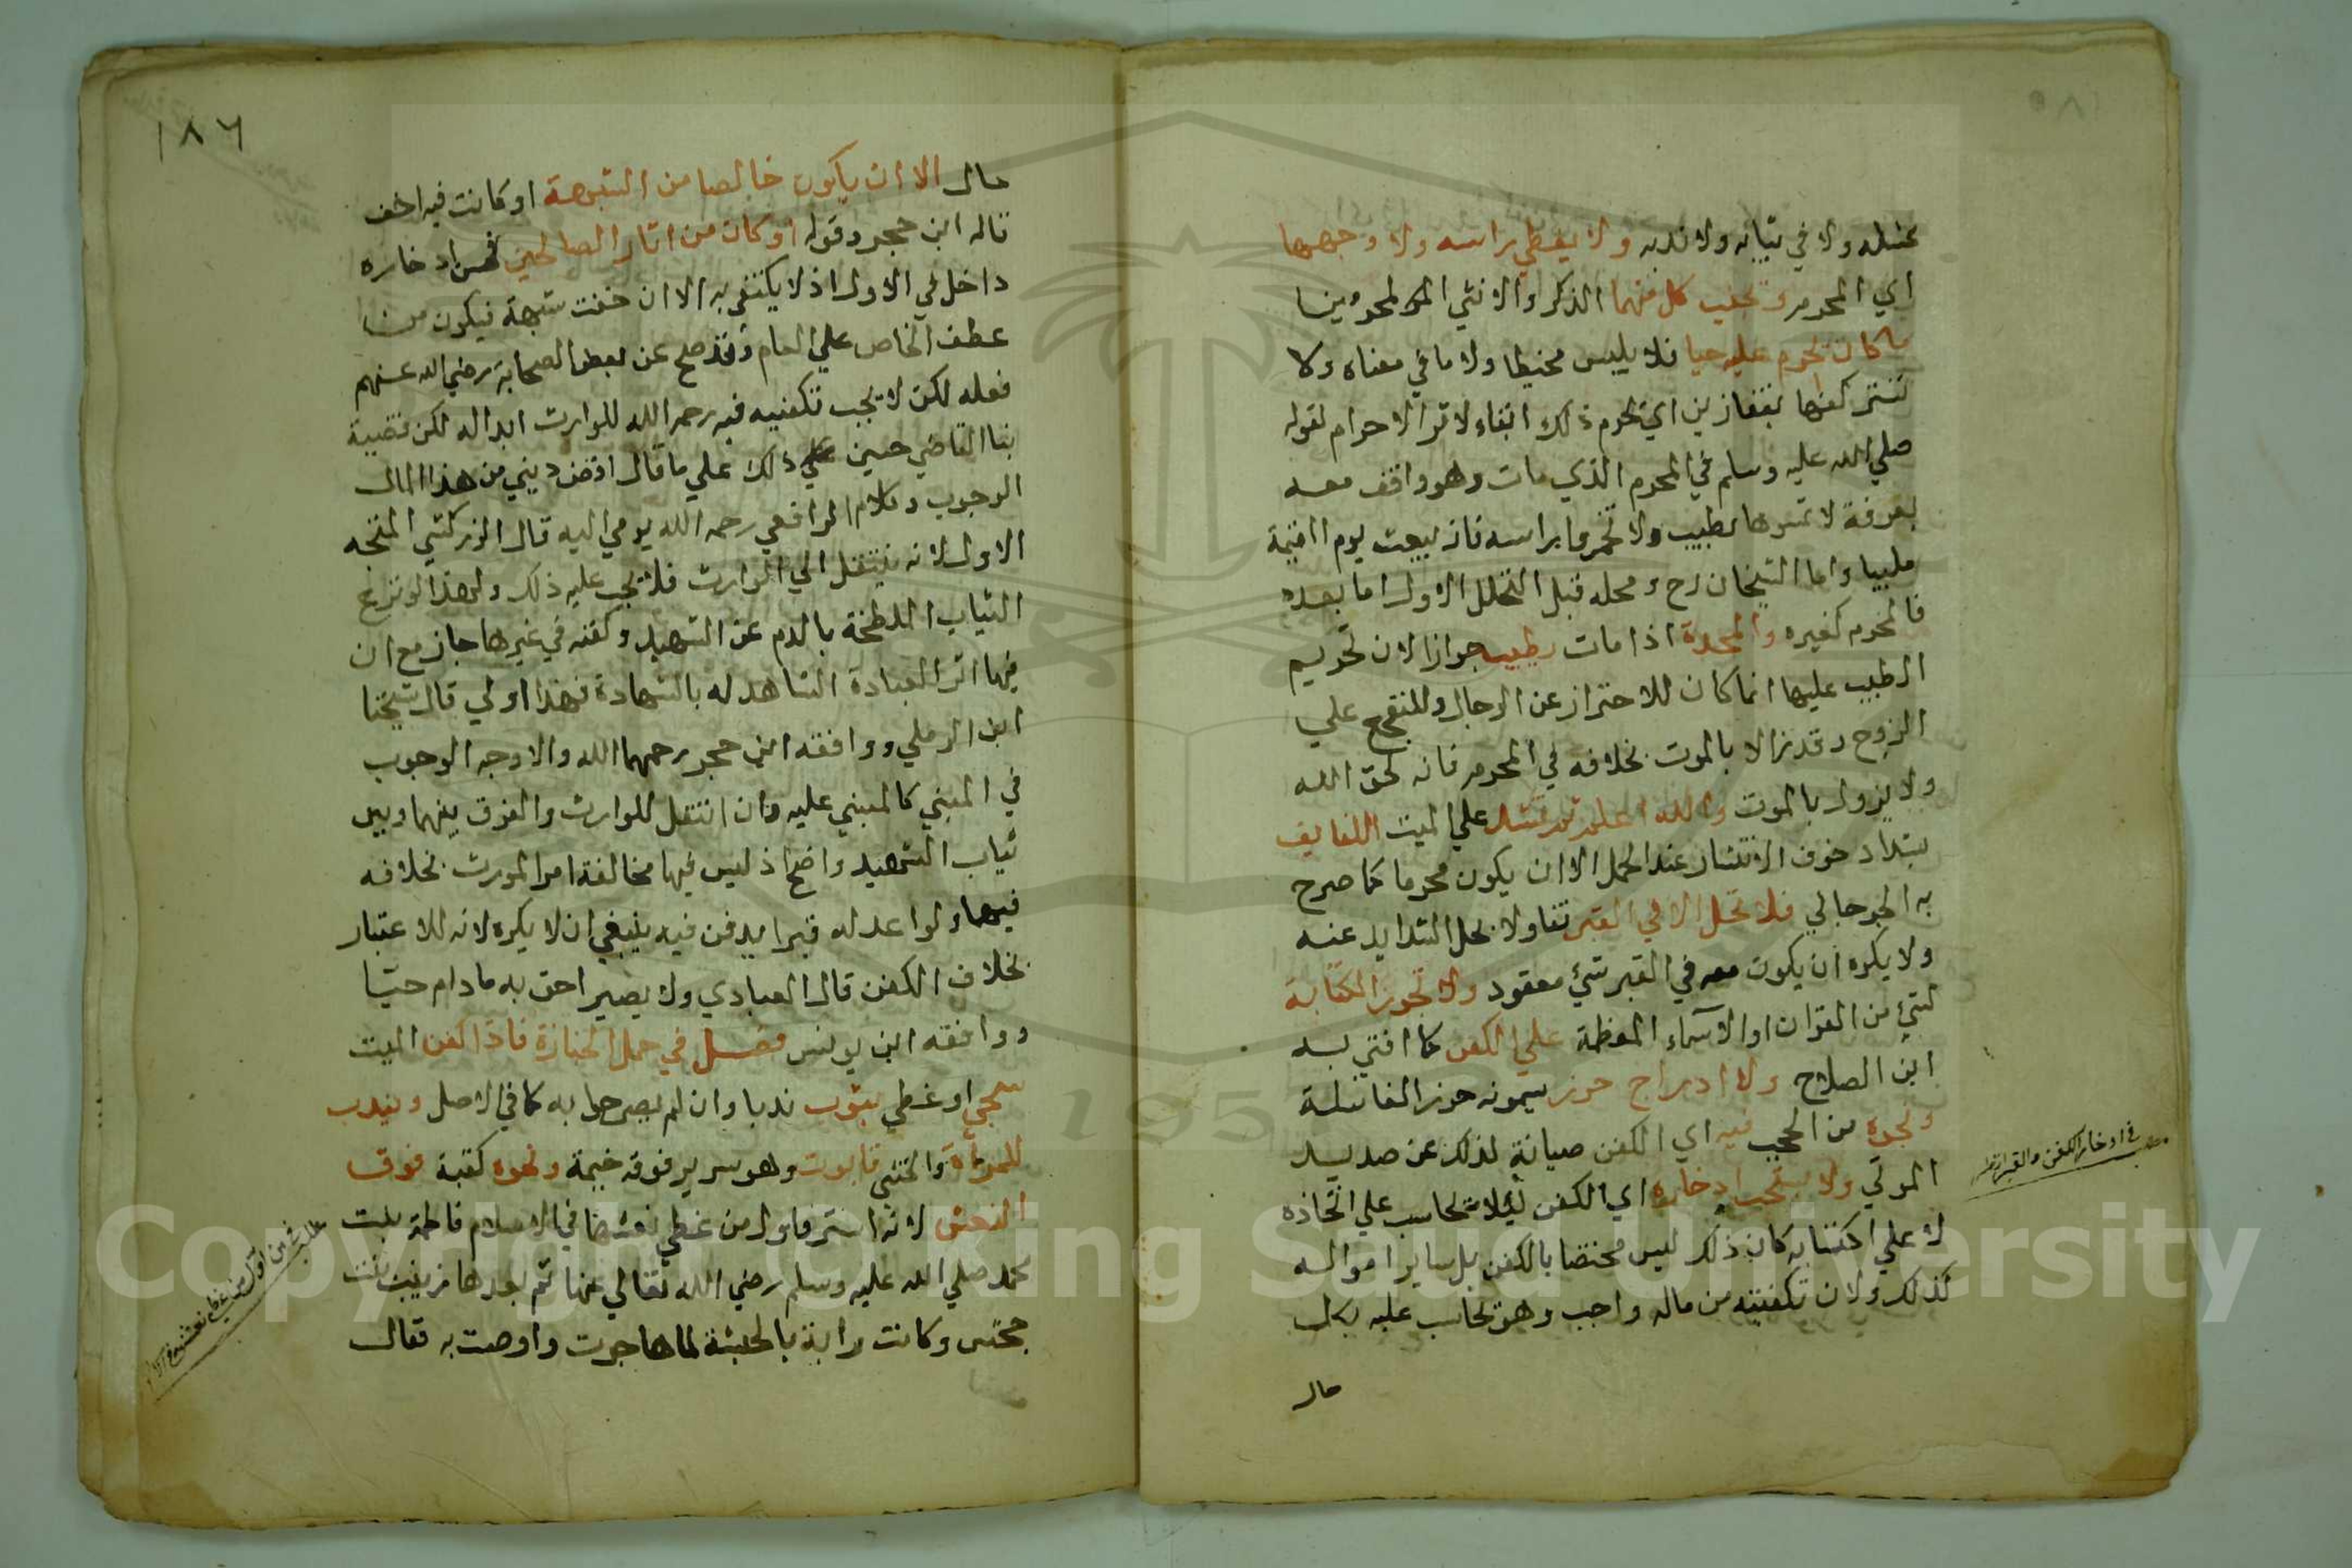 غسله ولا في ثيابه ولا بدنه ولا يغطي راسه ولا وجهها
اي المحرم وتجنيب كل منهما الذكر والانثي المحرمين
ما كان يحرم عليه حيا فلا يلبس مخيطا ولا ما في معناه ولا
تستر كفها بقفازين اي يحرم ذلك ابقاء لاثر الاحرام لقوله
صلي الله عليه وسلم في المحرم الذي مات وهو واقف معه
بعرفة لا تمسوه بطيب ولا تخمروا براسه فانه يبعث يوم القيمة
ملبيا رواه الشيخان رح ومحله قبل التحلل الاول اما بعده
فالمحرم كغيره والمحدة اذا ماتت يطيب جوازا لان تحريم
الطيب عليها انما كان للاحتراز عن الرجال وللتفجع علي
الزوج وقد زالا بالموت بخلافه في المحرم فانه لحق الله
ولا يزول بالموت والله اعلم ثم تشد علي الميت اللفايف
بشداد خوف الانتشار عند الحمل الا ان يكون محرما كما صرح
به الجرجاني فلا تحل الا في القبر تفاولا بحل الشدايد عنه
ولا يكره ان يكون معه في القبر شيء معقود ولا تجوز الكتابة
لشيء من القران او الاسماء المعظمة علي الكفن كما افتي به
ابن الصلاح ولا ادراج حرز يسمونه حرز الفاتنة
ونحوه من الحجب فيه اي الكفن صيانة لذلك عن صديد
الموتي ولا يستحب ادخاره اي الكفن لئلا يحاسب علي اتخاذه
لا علي اكتسابه كان ذلك ليس مختصا بالكفن بل ساير امواله
كذلك ولان تكفينه من ماله واجب وهو يحاسب عليه بكل
حال
في ادخار الكفن والقبر
١٨٦
حال الا ان يكون خالصا من الشبهة او كانت فيه اخف
قاله ابن حجر وقوله او كان من اثار الصالحين فحسن ادخاره
داخل في الاول اذ لا يكتفي به الا ان خفت شبهة فيكون من
عطف الخاص علي العام وقد صح عن بعض الصحابة رضي الله عنهم
فعله لكن لا يجب تكفينه فيه رحمه الله للوارث ابداله لكن قضية
بنا القاضي حسين علي ذلك علي ما قال اقض ديني من هذا المال
الوجوب وكلام الرافعي رحمه الله يومي اليه قال الزركشي المتجه
الاول لانه ينتقل الي الوارث فلا يجب عليه ذلك ولهذا لو نزع
الثياب الملطخة بالدم عن الشهيد وكفنه في غيرها جاز مع ان
فيها اثر العبادة الشاهد له بالشهادة فهذا اولي قال شيخنا
ابن الرملي ووافقه ابن حجر رحمهما الله والاوجه الوجوب
في المبني كالمبني عليه وان انتقل للوارث والفرق بينهما وبين
ثياب الشهيد واضح اذ ليس فيها مخالفة امر المورث بخلافه
فيهما ولو اعد له قبرا يدفن فيه ينبغي ان لا يكره لانه للاعتبار
بخلاف الكفن قال العبادي ولا يصير احق به ما دام حيا
ووافقه ابن يونس فصل في حمل الجنازة فاذا كفن الميت
سجي او غطي بثوب ندبا وان لم يصرحوا به كما في الاصل ويندب
للمرأة والخنثي تابوت وهو سرير فوقه خيمة ونحوه كقبة فوق
النعش لانه استر فاول من غطي نعشها في الاسلام فاطمة بنت
محمد صلي الله عليه وسلم رضي الله تعالي عنها ثم بعدها زينب بنت
جحش وكانت رايته بالحبشة لما هاجرت واوصت به فقال